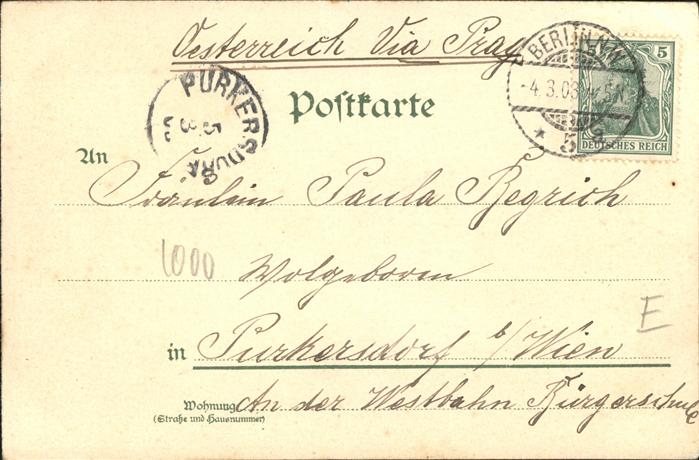 Oesterreich Via Prag
BERLIN N.W.
-4.3.03 4-5N
* 5 g
5
DEUTSCHES REICH
PURKERSDORF
5
3
03
Postkarte
An
Fräulein Paula Regrich
1000
Wolgeboren
E
in Purkersdorf b/Wien
Wohnung An der Westbahn Bürgerschule
(Straße und Hausnummer)